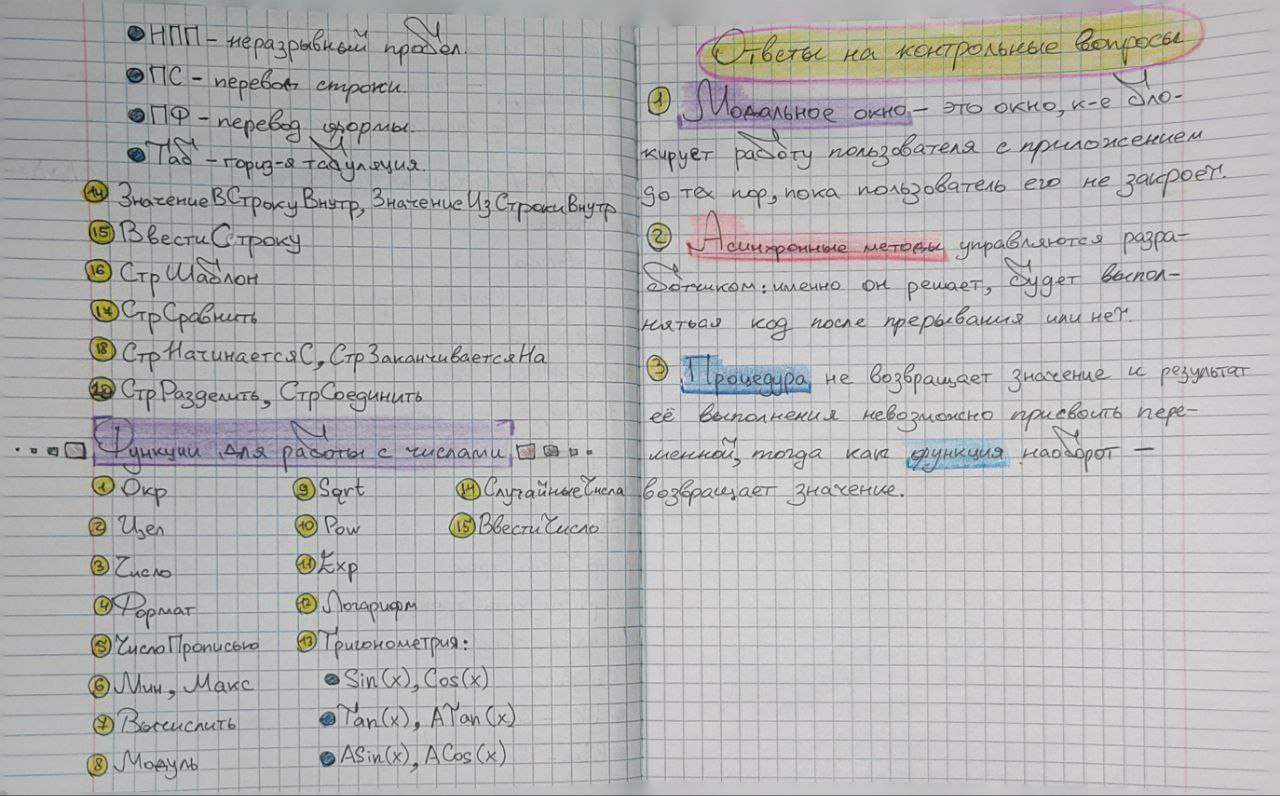 НПП - неразрывный пробел.
ПС - перевод строки.
ПФ - перевод формы.
Таб - гориз-я табуляция.
14 ЗначениеВСтрокуВнутр, ЗначениеИзСтрокиВнутр
15 ВвестиСтроку
16 СтрШаблон
17 СтрСравнить
18 СтрНачинаетсяС, СтрЗаканчиваетсяНа
19 СтрРазделить, СтрСоединить
Функции для работы с числами
1 Окр
2 Цел
3 Число
4 Формат
5 ЧислоПрописью
6 Мин, Макс
7 Вычислить
8 Модуль
9 Sqrt
10 Pow
11 Exp
12 Логарифм
13 Тригонометрия:
Sin(x), Cos(x)
Tan(x), ATan(x)
ASin(x), ACos(x)
14 СлучайныеЧисла
15 ВвестиЧисло
Ответы на контрольные вопросы
1 Модальное окно - это окно, к-е бло-
кирует работу пользователя с приложением
до тех пор, пока пользователь его не закроет.
2 Асинхронные методы управляются разра-
ботчиком: именно он решает, будет выпол-
няться код после прерывания или нет.
3 Процедура не возвращает значение и результат
её выполнения невозможно присвоить пере-
менной, тогда как функция наоборот -
возвращает значение.